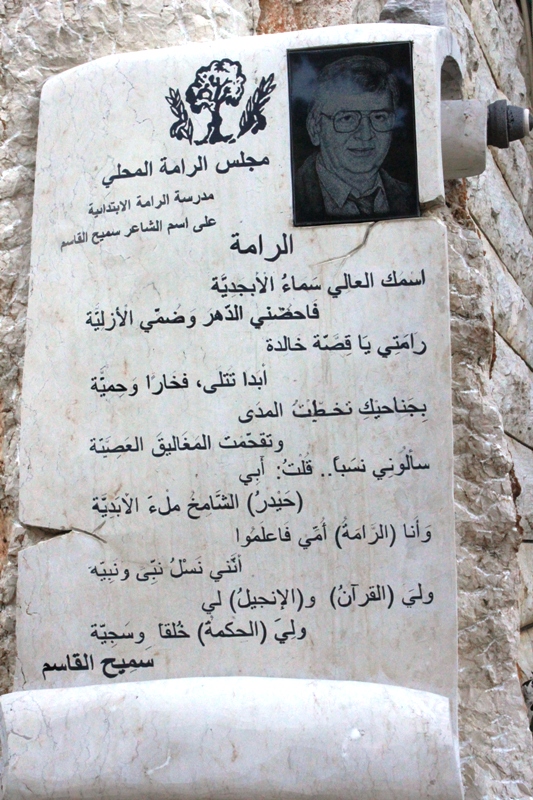 مجلس الرامة المحلي
مدرسة الرامة الابتدائية
على اسم الشاعر سميح القاسم
الرامة
اسمك العالي سَماءُ الْأبجَدِيَّة
فَاحضُني الدّهر وضُمّي الْأزليَّة
رامَتِي يَا قِصَّة خالدة
أبدا تتلى، فخارًا وحِميَّة
بِجَناحيْكِ تخطّيْتُ المدَى
وتقحّمت المَغاليقَ العَصِيَّة
سألُوني نسَباً.. قُلْتُ: أَبِي
(حَيْدرُ) الشَّامخُ ملْءَ الْأبديَّة
وَأنا (الرَّامَةُ) أُمِّي فَاعلمُوا
أنّني نَسْلُ نبّى ونبيّه
وليَ (القرآنُ) و(الإنجيلُ) لي
وليَ (الحِكمةُ) خُلقا وسَجيّة
سَميح القاسم